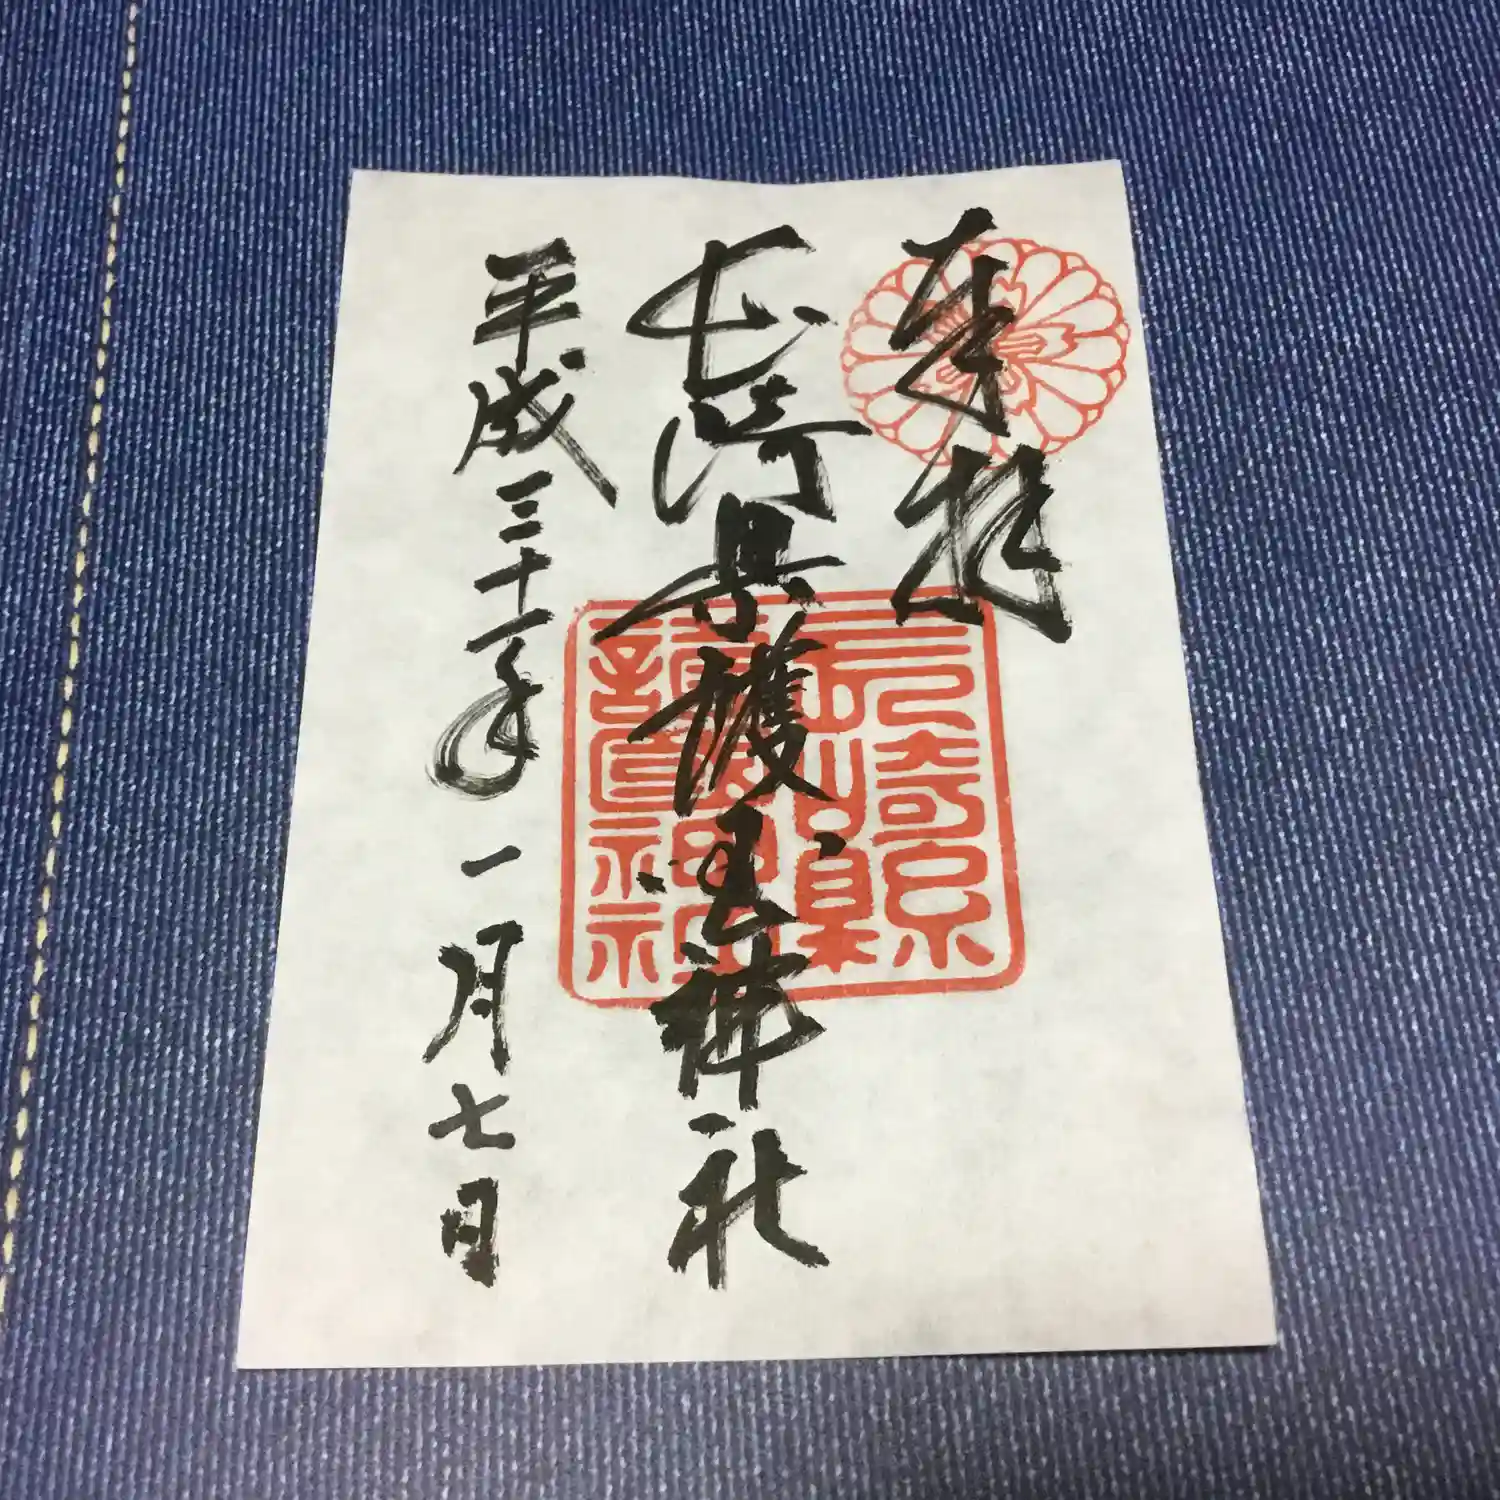 奉拝
長崎県護国神社
平成三十一年一月七日
長崎縣
護國神社